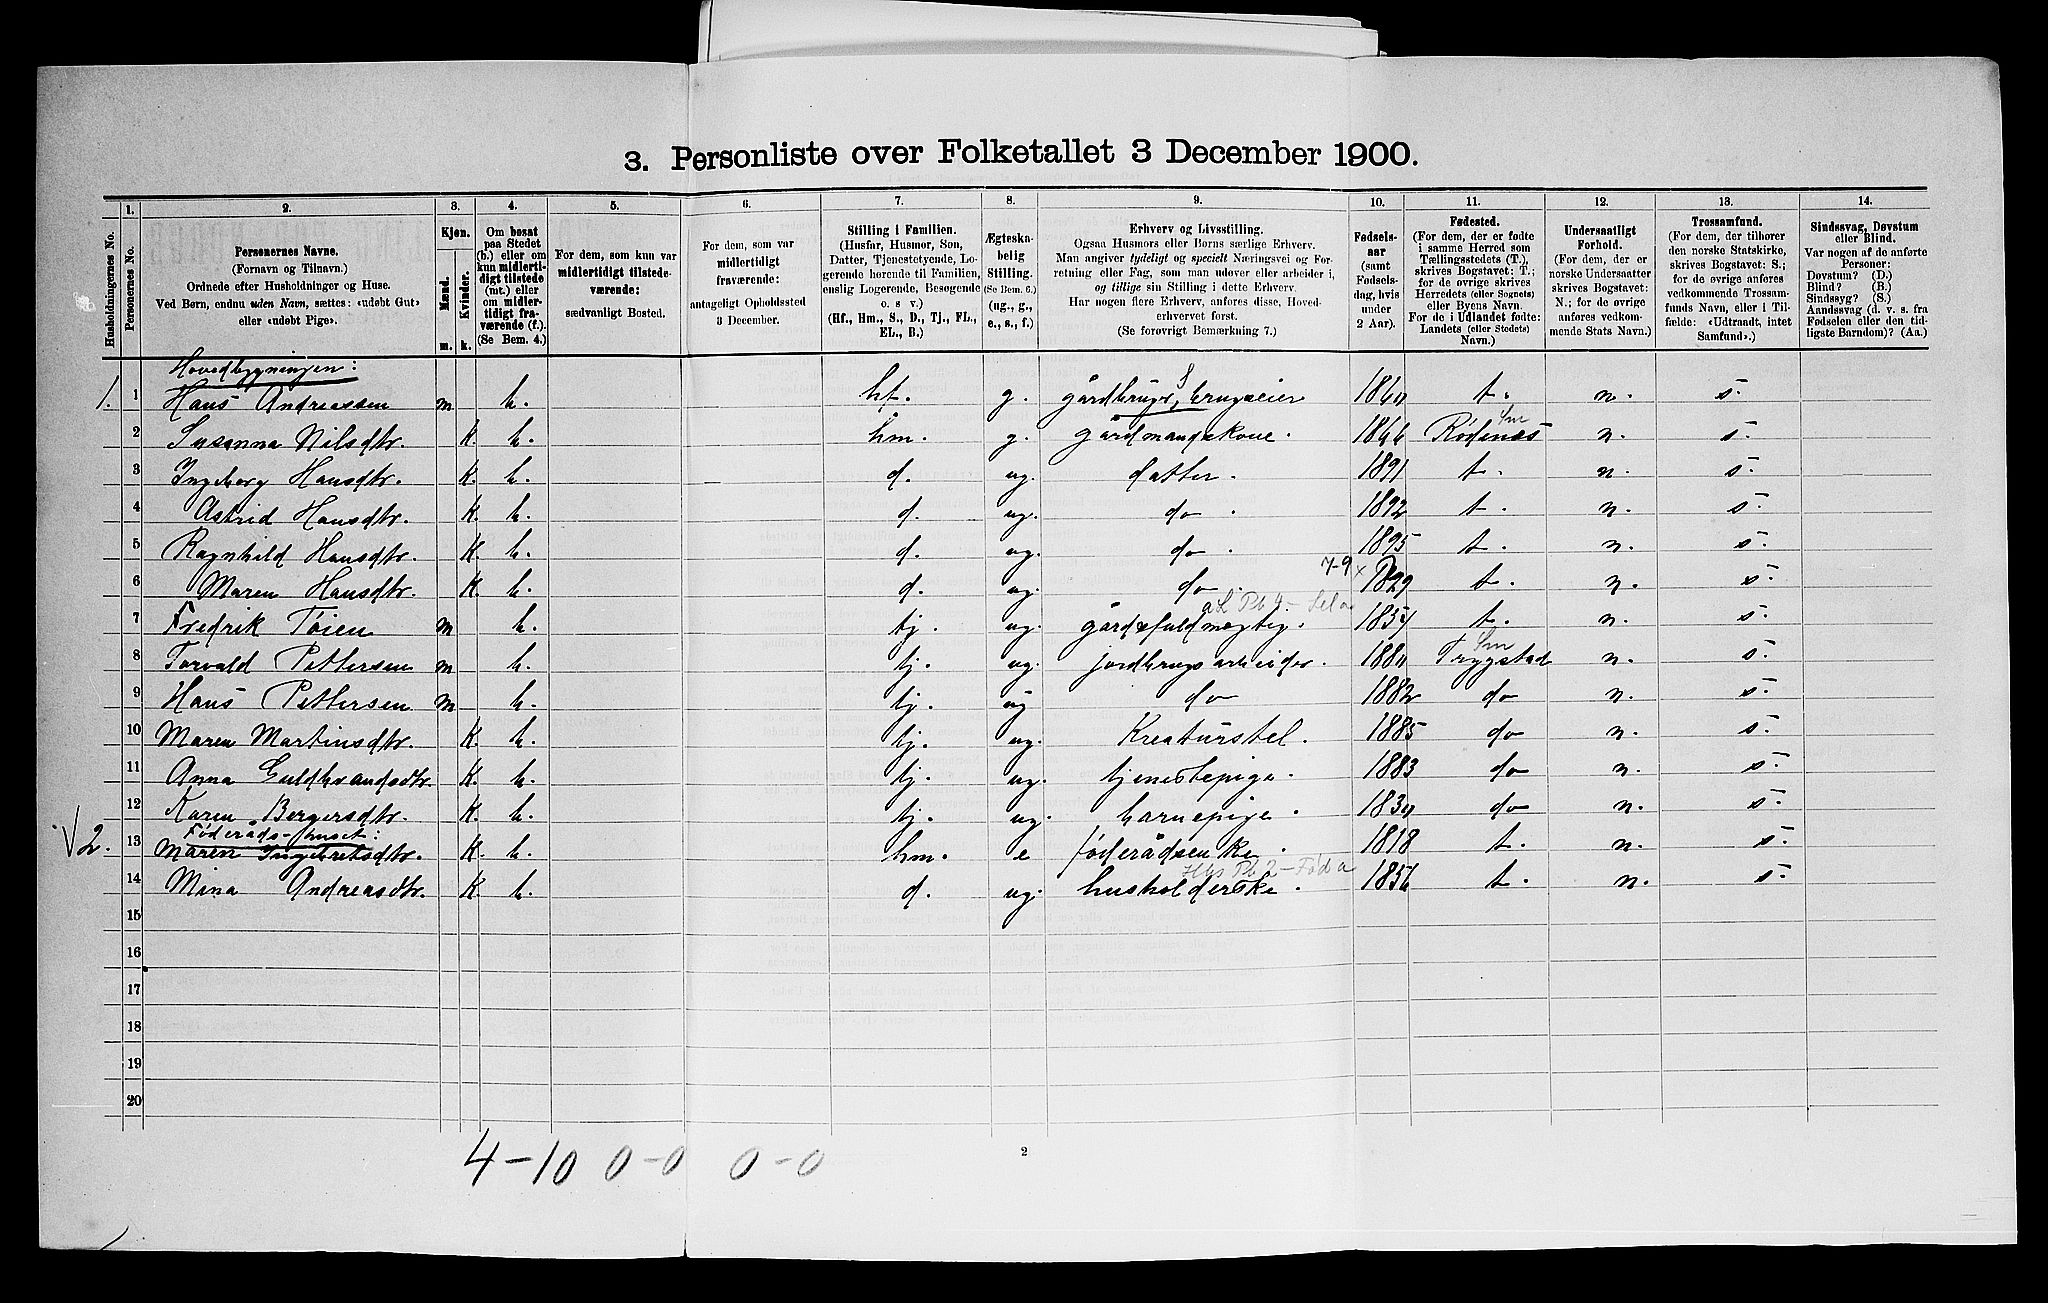 3. Personliste over Folketallet 3 December 1900.
Husholdningernes No.
1.
Personernes No.
2.
Personernes Navne.
(Fornavn og Tilnavn.)
Ordnede efter Husholdninger og Huse.
Ved Børn, endnu uden Navn, sættes: «udøbt Gut»
eller «udøbt Pige».
3.
Kjøn.
Mænd.
m.
Kvinder.
k.
4.
Om bosat
paa Stedet
(b.) eller om
kun midlerti-
digt tilstede
(mt.) eller
om midler-
tidigt fra-
værende (f.).
(Se Bem. 4.)
5.
For dem, som kun var
midlertidigt tilstede-
værende:
sædvanligt Bosted.
6.
For dem, som var
midlertidigt
fraværende:
antageligt Opholdssted
3 December.
7.
Stilling i Familien.
(Husfar, Husmor, Søn,
Datter, Tjenestetyende, Lo-
gerende hørende til Familien,
enslig Logerende, Besøgende
o. s v.)
(Hf., Hm., S., D., Tj., FL.,
EL., B.)
8.
Ægteska-
belig
Stilling.
(Se Bem. 6.)
(ug., g.,
e., s., f.)
9.
Erhverv og Livsstilling.
Ogsaa Husmors eller Børns særlige Erhverv.
Man angiver tydeligt og specielt Næringsvei og For-
retning eller Fag, som man udøver eller arbeider i,
og tillige sin Stilling i dette Erhverv.
Har nogen flere Erhverv, anføres disse, Hoved-
erhvervet først.
(Se forøvrigt Bemærkning 7.)
10.
Fødsels-
aar
(samt
Fødsels-
dag, hvis
under
2 Aar).
11.
Fødested.
(For dem, der er fødte
i samme Herred som
Tællingsstedets (T.),
skrives Bogstavet: T.;
for de øvrige skrives
Herredets (eller Sognets)
eller Byens Navn.
For de i Udlandet fødte:
Landets (eller Stedets)
Navn.)
12.
Undersaatligt
Forhold.
(For dem, der er
norske Undersaatter
skrives Bogstavet:
N.; for de øvrige
anføres vedkom-
mende Stats Navn.)
13.
Trossamfund.
(For dem, der tilhører
den norske Statskirke,
skrives Bogstavet: S.;
for de øvrige anføres
vedkommende Trossam-
funds Navn, eller i Til-
fælde: «Udtraadt, intet
Samfund».)
14.
Sindssvag, Døvstum
eller Blind.
Var nogen af de anførte
Personer:
Døvstum? (D.)
Blind? (B.)
Sindssyg? (S.)
Aandssvag (d. v. s. fra
Fødselen eller den tid-
ligste Barndom)? (Aa.)
Hovedbygningen:
1. 1 Hans Andreassen m b. hf. g. gårdbruger, brugseier 1860 t. n. s.
2 Susanna Nilsdtr. K. b. hm. g. gårdmandskone. 1866 Rødenæs n. s.
3 Ingeborg Hansdtr. K. b. d. ug. datter. 1891 t. n. s.
4 Astrid Hansdtr. K. b. d. ug. do. 1892 t. n. s.
5 Ragnhild Hansdtr. K. b. d. ug. do. 1895 t. n. s.
7-9 x
6 Maren Hansdtr. K. b. d. ug. do. 1899 t. n. s.
7 Fredrik Tøien m b. tj. ug. gårdsfuldmægtig. 1857 t. n. s.
8 Torvald Pettersen m b. tj. ug. jordbrugsarbeider. 1880 Trygstad n. s.
9 Hans Pettersen m b. tj. ug do 1882 do n. s.
10 Maren Martinsdtr. K. b. tj. ug. Kreaturstel. 1885 do n. s.
11 Anna Guldbrandsdtr. K. b. tj. ug. tjenestepige. 1883 do n. s.
12 Karen Bergersdtr. K. b. tj. ug. barnepige. 1830 do n. s.
Føderåds-huset:
√ 2. 13 Maren Ingebretsdtr. K. b. hm. e føderådsenke. 1818 t. n. s.
14 Mina Andreasdtr. K b. d. ug. husholderske. 1856 t. n. s.
15
16
17
18
19
20
4-10 0-0 0-0
2